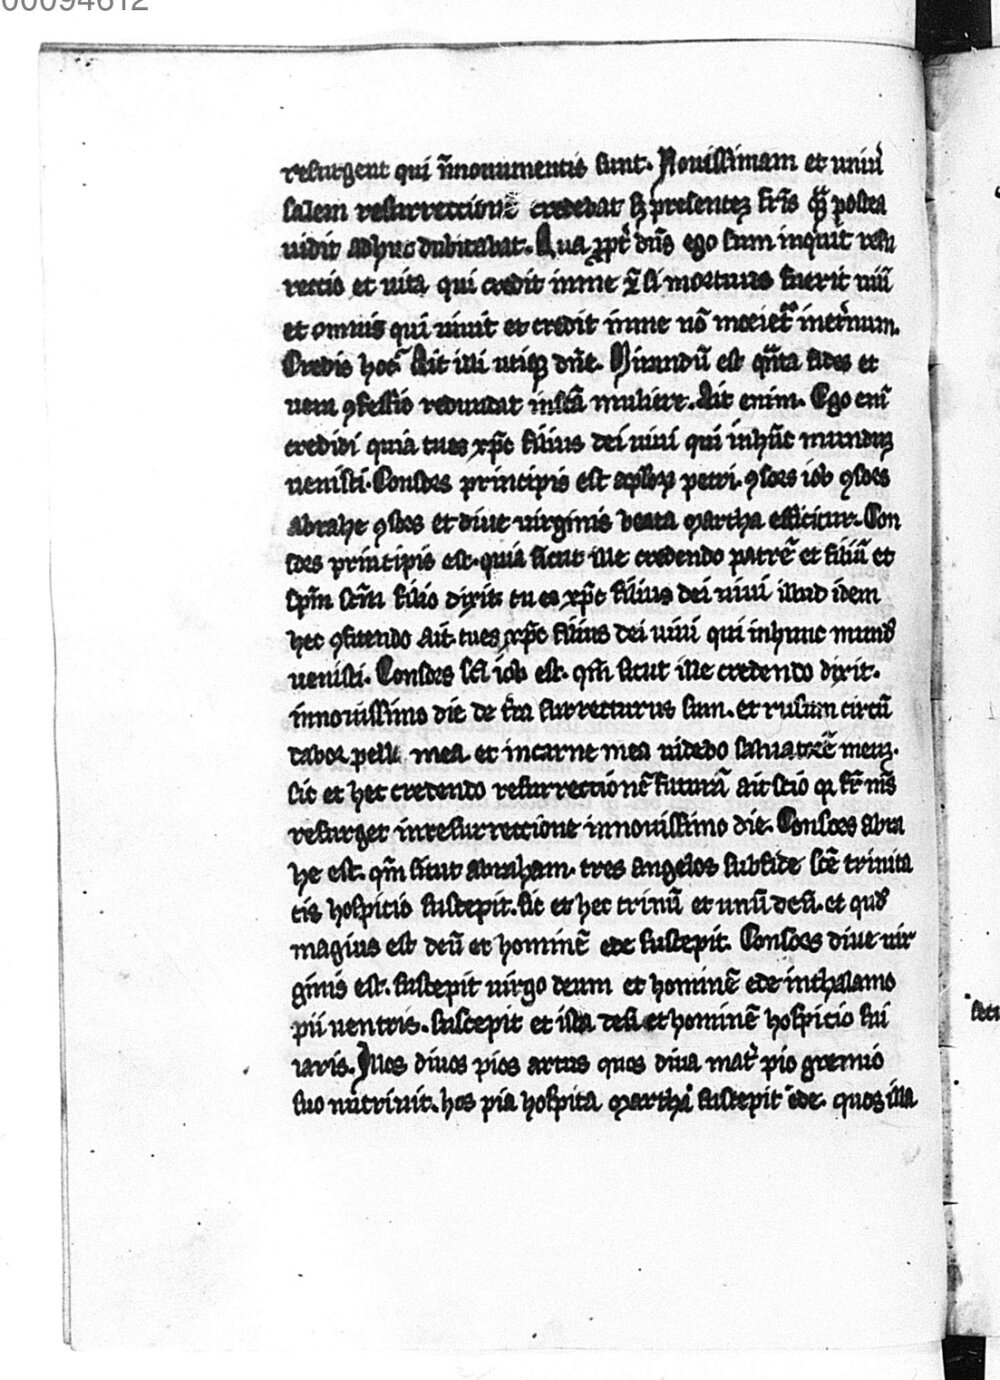 00094612
resurgent qui ī monumentis sunt. Nouissimam et uniu̓
salem resurrectionē credebat sꝫ presenteꝫ fr̄is qꝫ postea
uidit adhuc dubitabat. Qua xpt̓ dn̄s ego sum inquit resu
rectio et uita qui credit in me ⁊ si mortuus fuerit uiu
et omnis qui uiuit et credit in me nō moriet᷑ in et̓num.
Credis hoc. Ait illi utiqꝫ dn̄e. Mirandū est q̄nta fides et
uera ꝯfessio redundat in sc̄a muliere. Ait enim. Ego eni̅
credidi quia tu es xp̄c filius dei uiui qui in hūc munduꝫ
uenisti. Consors principis est apl̓oꝝ petri. ꝯsors iob ꝯsors
abrahe ꝯsors et diue uirginis beata martha efficitur. Con
sors principis est. quia sicut ille credendo patrē et filiū et
sp̄m sc̄m filio dixit tu es xp̄c filius dei uiui illud idem
hec ꝯfitendo ait. tu es xp̄c filius dei uiui qui in hunc mund̓
uenisti. Consors sc̄i iob est. qm̄ sicut ille credendo dixit.
in nouissimo die de t̓ra surrecturus sum. et rursum circū
dabor pelle mea. et in carne mea uidebo saluatorē meuꝫ.
sic et hec credendo resurrectionē futurā ait scio qꝫ fr̄ m̄s
resurget in resurrectione in nouissimo die. Consors abra
he est. qm̄ sicut abraham. tres angelos sub fide sc̄e trinita
tis hospitio suscepit. sic et hec trinū et unū deū. et quod
magius est deū et hominē ede suscepit. Consors diue uir
ginis est. suscepit uirgo deum et hominē ede in thalamo
pii uentris. suscepit et ista deū et hominē hospicio sui
laris. Illos diuos pios artus quos diua mat̓ pio gremio
suo nutriuit. hos pia hospita martha suscepit ede. quos illa